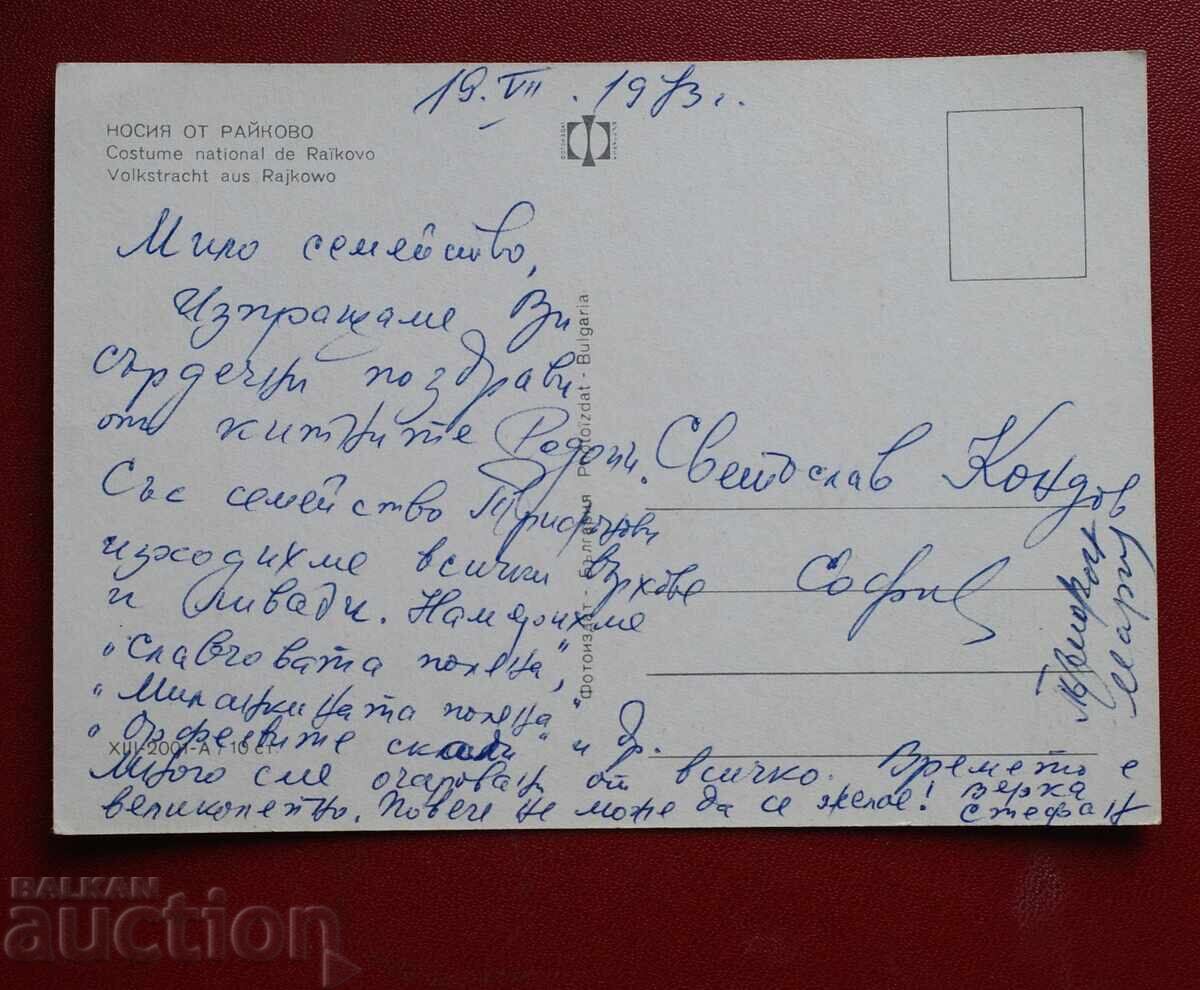 19. VII. 1973 г.
НОСИЯ ОТ РАЙКОВО
Costume national de Raïkovo
Volkstracht aus Rajkowo
Мило семейство,
Изпращаме Ви
сърдечни поздрави
от китните Родопи.
Със семейство Трифонови
изходихме всички върхове
и ливади. Намерихме
"Славчовата поляна",
"Миланкината поляна"
"Орфеевите скали" и др.
XIII-2001-А / 10 ст.
Много сме очаровани от всичко. Времето е
великолепно. Повече не може да се желае!
Верка
Стефан
Светослав Кондов
София
Мария
Фотоиздат - България Photoizdat - Bulgaria
BALKAN
auction